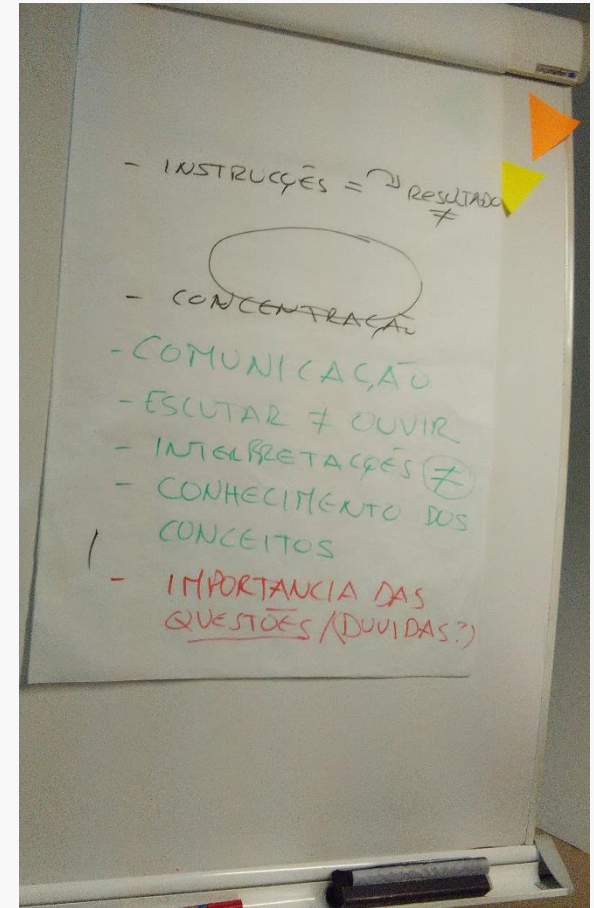 - INSTRUCÇÕES = ↷ RESULTADO
≠
- CONCENTRAÇÃO
- COMUNICAÇÃO
- ESCUTAR ≠ OUVIR
- INTERPRETACÇÕES ≠
- CONHECIMENTO DOS
CONCEITOS
- IMPORTANCIA DAS
QUESTÕES / (DUVIDAS?)